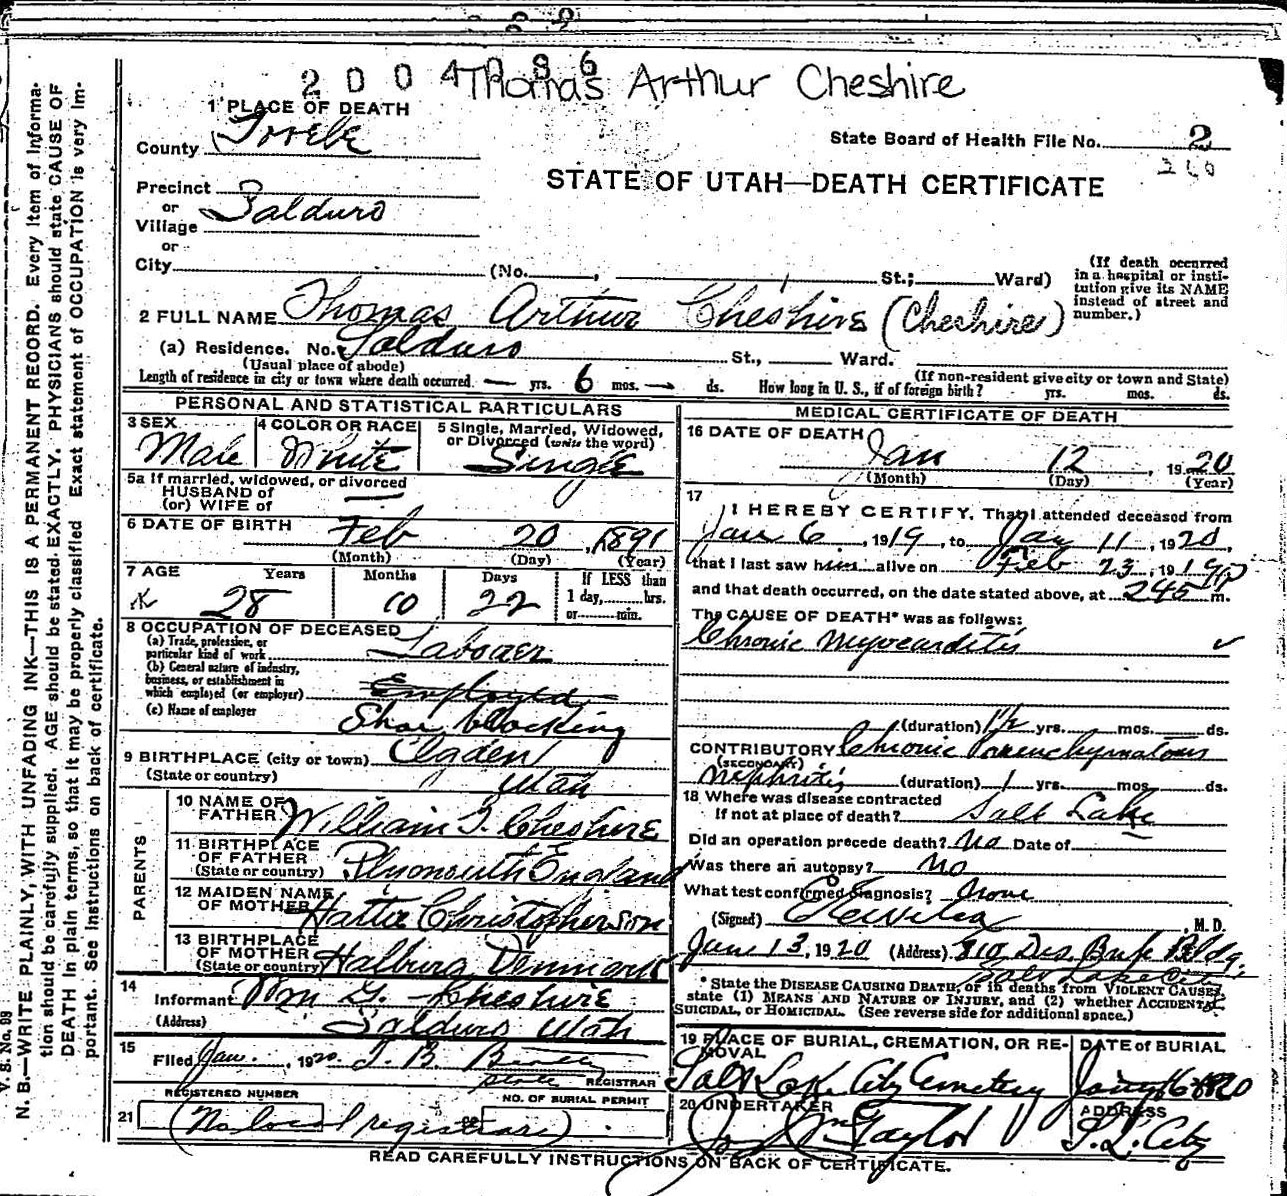 2004036
Thomas Arthur Cheshire
1 PLACE OF DEATH
County Tooele
State Board of Health File No. 2
260
STATE OF UTAH—DEATH CERTIFICATE
Precinct
or Salduro
Village
or
City (No. , St.; Ward)
(If death occurred in a hospital or insti-
tution give its NAME
instead of street and
number.)
2 FULL NAME Thomas Arthur Cheshire (Cheshire)
(a) Residence. No. Salduro St., Ward.
(Usual place of abode) (If non-resident give city or town and State)
Length of residence in city or town where death occurred — yrs. 6 mos. — ds. How long in U. S., if of foreign birth? yrs. mos. ds.
PERSONAL AND STATISTICAL PARTICULARS
3 SEX Male
4 COLOR OR RACE White
5 Single, Married, Widowed,
or Divorced (write the word)
Single
5a If married, widowed, or divorced
HUSBAND of
(or) WIFE of —
6 DATE OF BIRTH Feb 20, 1891
(Month) (Day) (Year)
7 AGE Years Months Days If LESS than
28 10 22 1 day, hrs.
or min.
8 OCCUPATION OF DECEASED
(a) Trade, profession, or
particular kind of work Laborer
(b) General nature of industry,
business, or establishment in
which employed (or employer) Employed
(c) Name of employer
9 BIRTHPLACE (city or town) Ogden
(State or country) Utah
PARENTS
10 NAME OF
FATHER William G. Cheshire
11 BIRTHPLACE
OF FATHER
(State or country) Plymouth England
12 MAIDEN NAME
OF MOTHER Hattie Christopherson
13 BIRTHPLACE
OF MOTHER
(State or country) Halburg Denmark
14
Informant Wm G. Cheshire
(Address) Salduro Utah
15
Filed Jan. , 1920. T. B.
REGISTRAR
REGISTERED NUMBER NO. OF BURIAL PERMIT
21 (No local registrar)
MEDICAL CERTIFICATE OF DEATH
16 DATE OF DEATH Jan 12, 1920
(Month) (Day) (Year)
17
I HEREBY CERTIFY, That I attended deceased from
Jan 6, 1919, to Jan 11, 1920,
that I last saw him alive on Feb 23, 19
and that death occurred, on the date stated above, at 245 m.
The CAUSE OF DEATH* was as follows:
Chronic Myocarditis
(duration) 1½ yrs. mos. ds.
CONTRIBUTORY Chronic Parenchymatous
(SECONDARY)
Nephritis (duration) 1 yrs. mos. ds.
18 Where was disease contracted
If not at place of death? Salt Lake
Did an operation precede death? No Date of
Was there an autopsy? No
What test confirmed diagnosis? None
(Signed) , M. D.
Jan 13, 1920 (Address) 810 Des. Bnk Bldg.
Salt Lake C
* State the DISEASE CAUSING DEATH, or in deaths from VIOLENT CAUSES,
state (1) MEANS AND NATURE OF INJURY, and (2) whether ACCIDENTAL,
SUICIDAL, or HOMICIDAL. (See reverse side for additional space.)
19 PLACE OF BURIAL, CREMATION, OR RE-
MOVAL
Salt Lake City Cemetery
DATE of BURIAL
Jany 16 1920
20 UNDERTAKER
Jos Wm Taylor
ADDRESS
S. L. City
READ CAREFULLY INSTRUCTIONS ON BACK OF CERTIFICATE.
V. S. No. 99
N. B.—WRITE PLAINLY, WITH UNFADING INK—THIS IS A PERMANENT RECORD. Every Item of Informa-
tion should be carefully supplied. AGE should be stated EXACTLY. PHYSICIANS should state CAUSE OF
DEATH in plain terms, so that it may be properly classified. Exact statement of OCCUPATION is very im-
portant. See instructions on back of certificate.